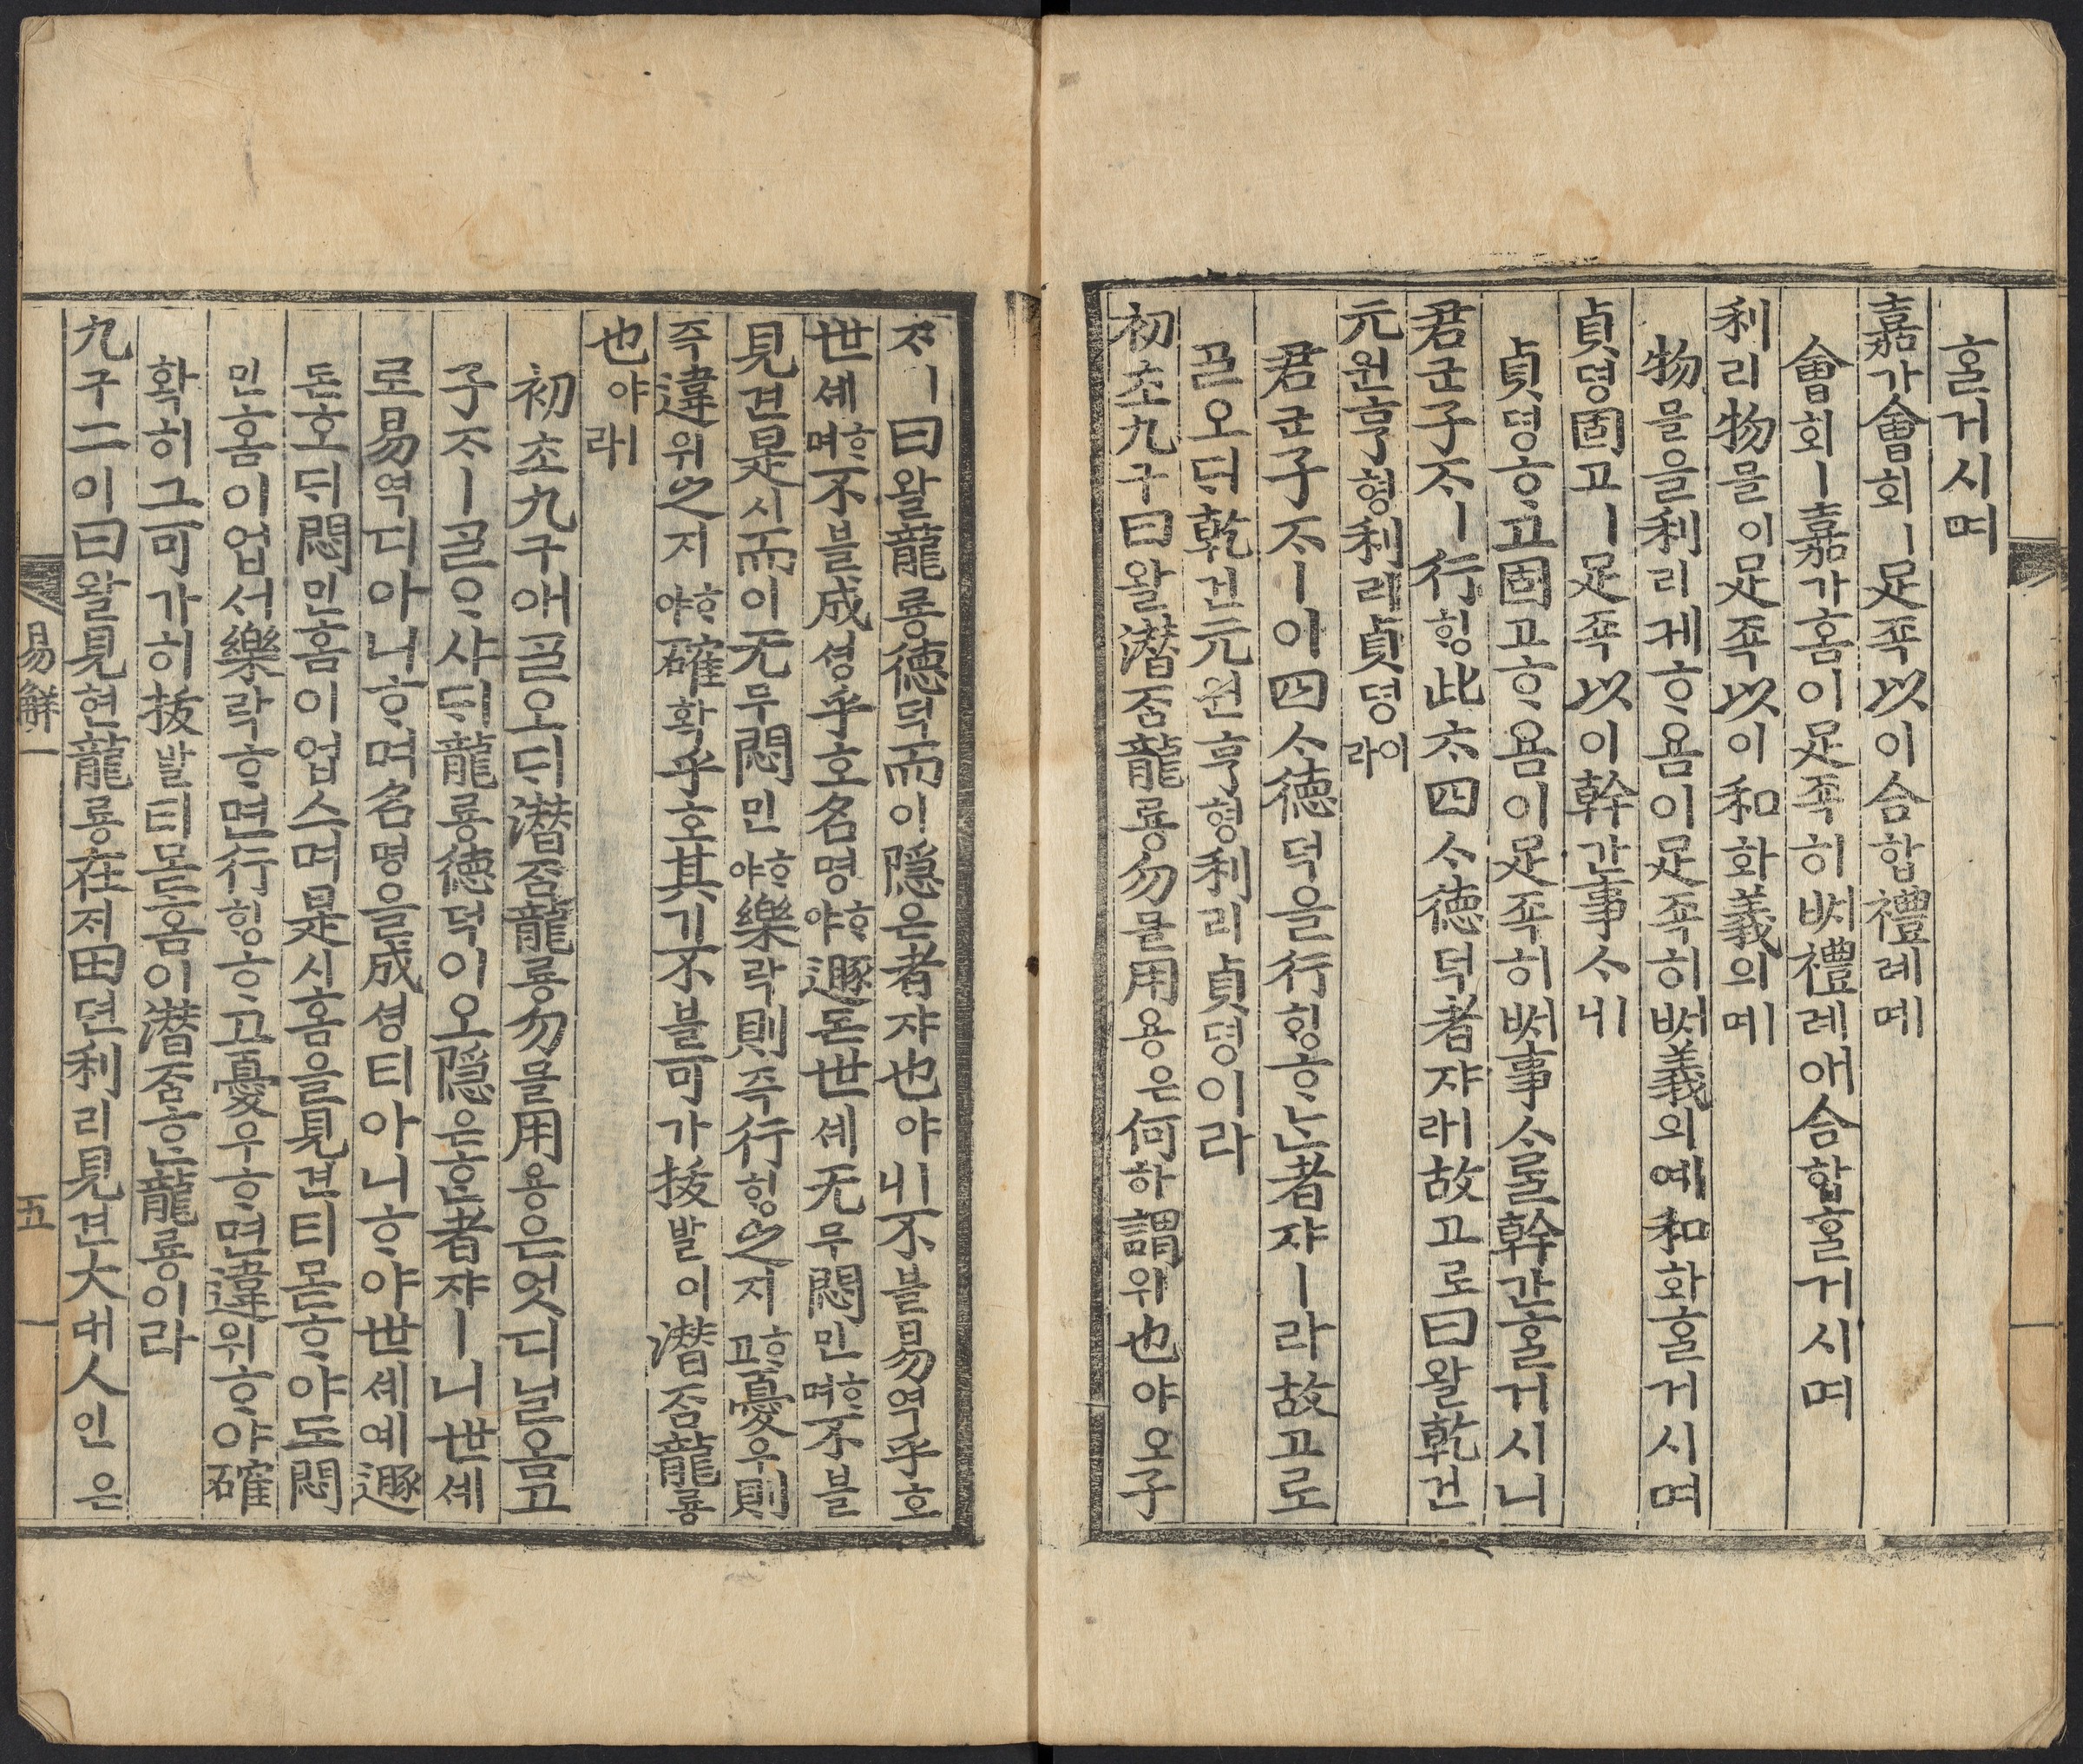 ᄒᆞᆯ거시며
嘉가會회ㅣ足죡以이合합禮례몌
會회ㅣ嘉가홈이足죡히ᄡᅥ禮례애合합ᄒᆞᆯ거시며
利리物믈이足죡以이和화義의몌
物믈을利리케ᄒᆞ욤이足죡히ᄡᅥ義의예和화ᄒᆞᆯ거시며
貞뎡固고ㅣ足죡以이幹간事ᄉᆞ니ㅣ
貞뎡ᄒᆞ고固고ᄒᆞ욤이足죡히ᄡᅥ事ᄉᆞᄅᆞᆯ幹간ᄒᆞᆯ거시니
君군子ᄌᆞㅣ行ᄒᆡᆼ此ᄎᆞ四ᄉᆞ德덕者쟈래故고로曰왈乾건
元원亨형利리貞뎡이라
君군子ᄌᆞㅣ이四ᄉᆞ德덕을行ᄒᆡᆼᄒᆞᄂᆞᆫ者쟈ㅣ라故고로
ᄀᆞᆯ오ᄃᆡ乾건元원亨형利리貞뎡이라
初초九구曰왈潛ᄌᆞᆷ龍룡勿믈用용은何하謂위也야오子
ᄌᆞㅣ曰왈龍룡德덕而이隱은者쟈也야니ㅣ不블易역乎호
世셰ᄒᆞ며不블成셩乎호名명ᄒᆞ야遯돈世셰无무悶민ᄒᆞ며不블
見견是시而이无무悶민ᄒᆞ야樂락則즉行ᄒᆡᆼ之지ᄒᆞ고憂우則
즉違위之지ᄒᆞ야確확乎호其기不블可가拔발이潛ᄌᆞᆷ龍룡
也야래
初초九구애ᄀᆞᆯ오ᄃᆡ潛ᄌᆞᆷ龍룡勿믈用용은엇디닐옴고
子ᄌᆞㅣᄀᆞᆯᄋᆞ샤ᄃᆡ龍룡德덕이오隱은ᄒᆞᆫ者쟈ㅣ니世셰
로易역디아니ᄒᆞ며名명을成셩티아니ᄒᆞ야世셰예遯
돈호ᄃᆡ悶민홈이업스며是시홈을見견티몯ᄒᆞ야도悶
민홈이업서樂락ᄒᆞ면行ᄒᆡᆼᄒᆞ고憂우ᄒᆞ면違위ᄒᆞ야確
확히그可가히拔발티몯홈이潛ᄌᆞᆷᄒᆞᆫ龍룡이라
九구二이曰왈見현龍룡在ᄌᆡ田뎐利리見견大대人인은
易解一 五